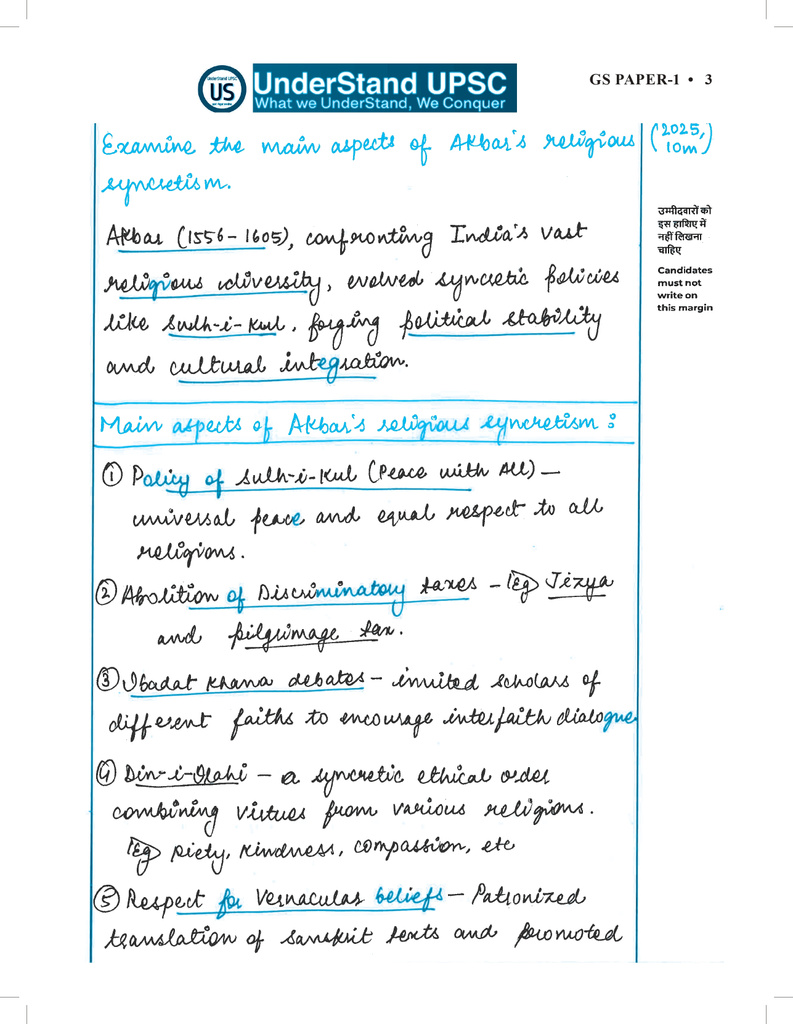 UnderStand UPSC
US
UnderStand UPSC
What we UnderStand, We Conquer
GS PAPER-1 • 3
Examine the main aspects of Akbar's religious
syncretism.
(2025,
10m)
उम्मीदवारों को
इस हाशिए में
नहीं लिखना
चाहिए
Candidates
must not
write on
this margin
Akbar (1556-1605), confronting India's vast
religious diversity, evolved syncretic policies
like Sulh-i-Kul, forging political stability
and cultural integration.
Main aspects of Akbar's religious syncretism :
① Policy of Sulh-i-Kul (Peace with All) —
universal peace and equal respect to all
religions.
② Abolition of Discriminatory taxes - Eg Jizya
and pilgrimage tax.
③ Ibadat Khana debates - invited scholars of
different faiths to encourage interfaith dialogue
④ Din-i-Ilahi - a syncretic ethical order
combining virtues from various religions.
Eg piety, kindness, compassion, etc
⑤ Respect for Vernacular beliefs - Patronized
translation of Sanskrit texts and promoted